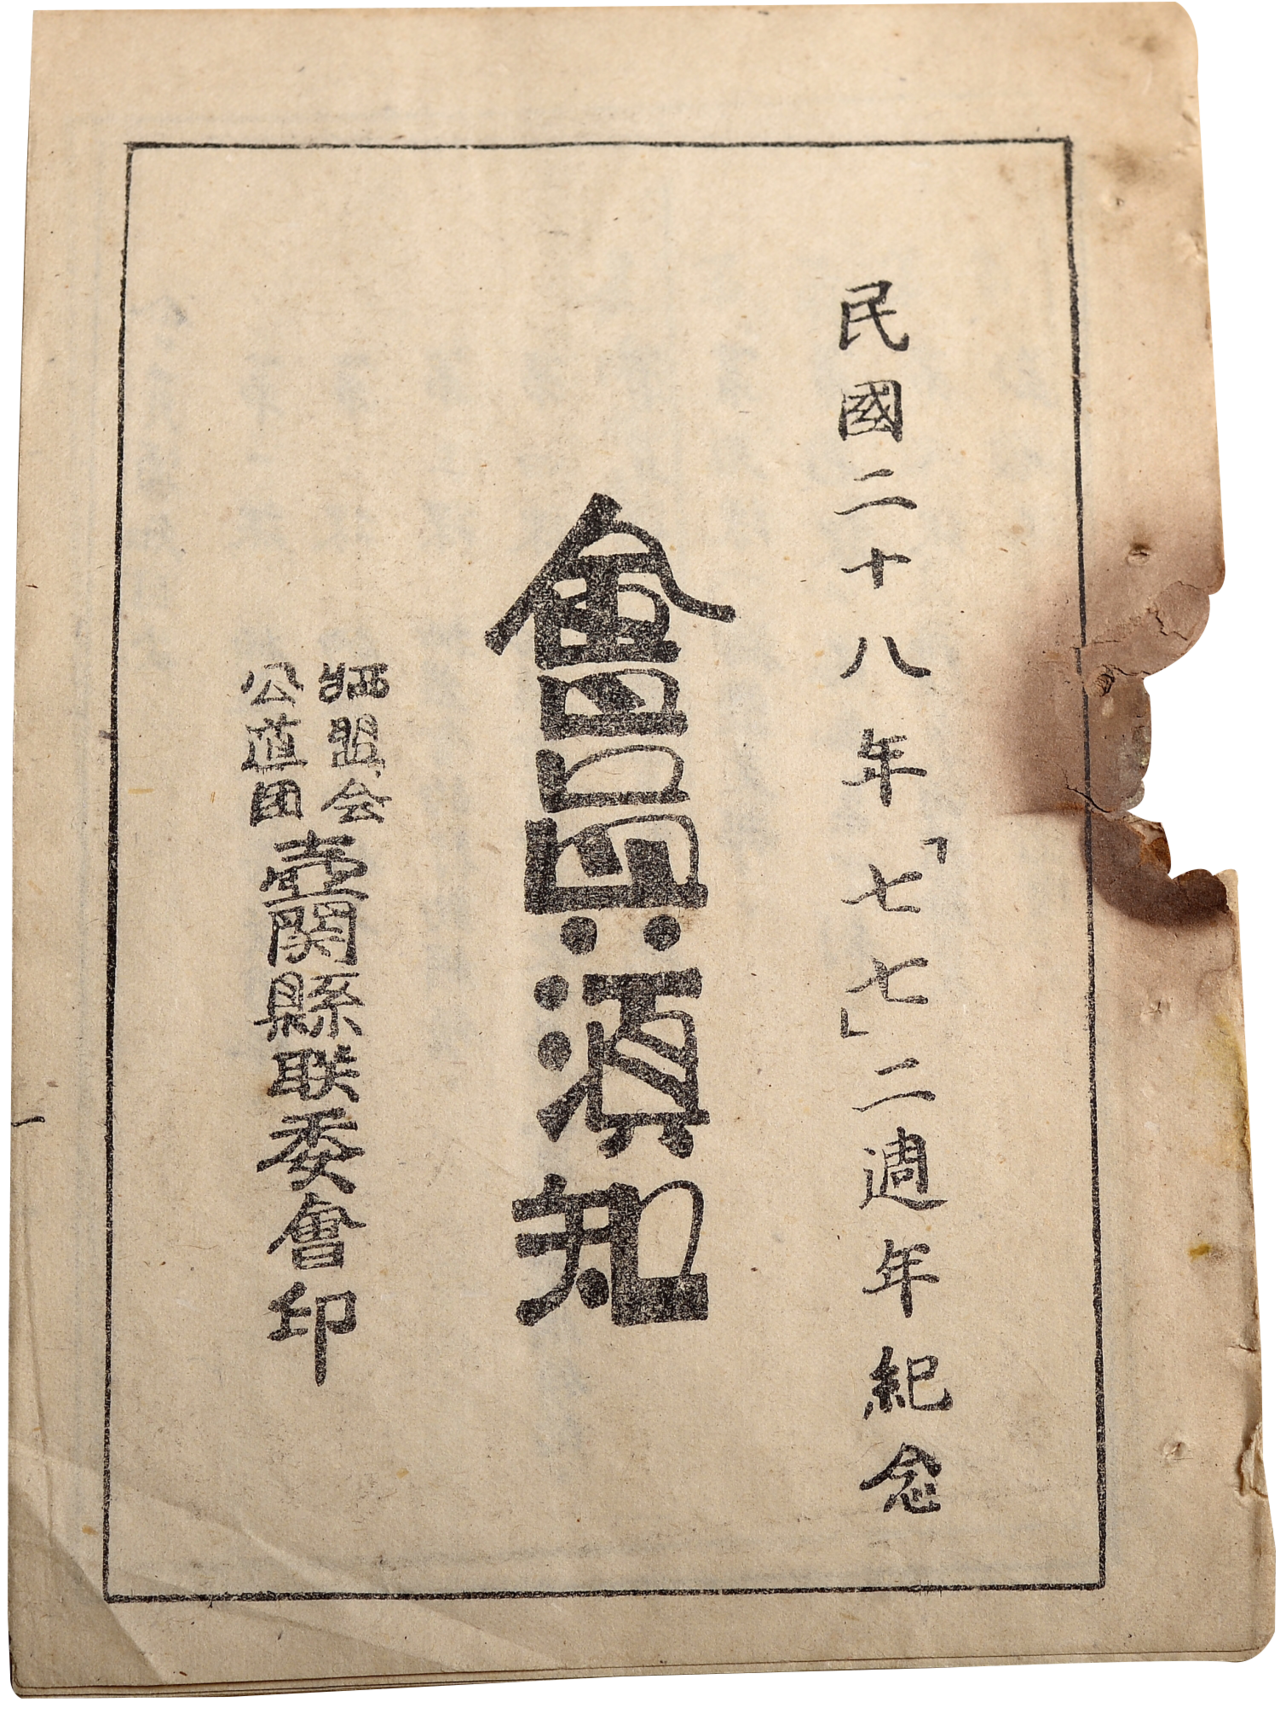 民國二十八年「七七」二週年紀念
會員須知
牺盟会
公道团
壺関縣联委會印